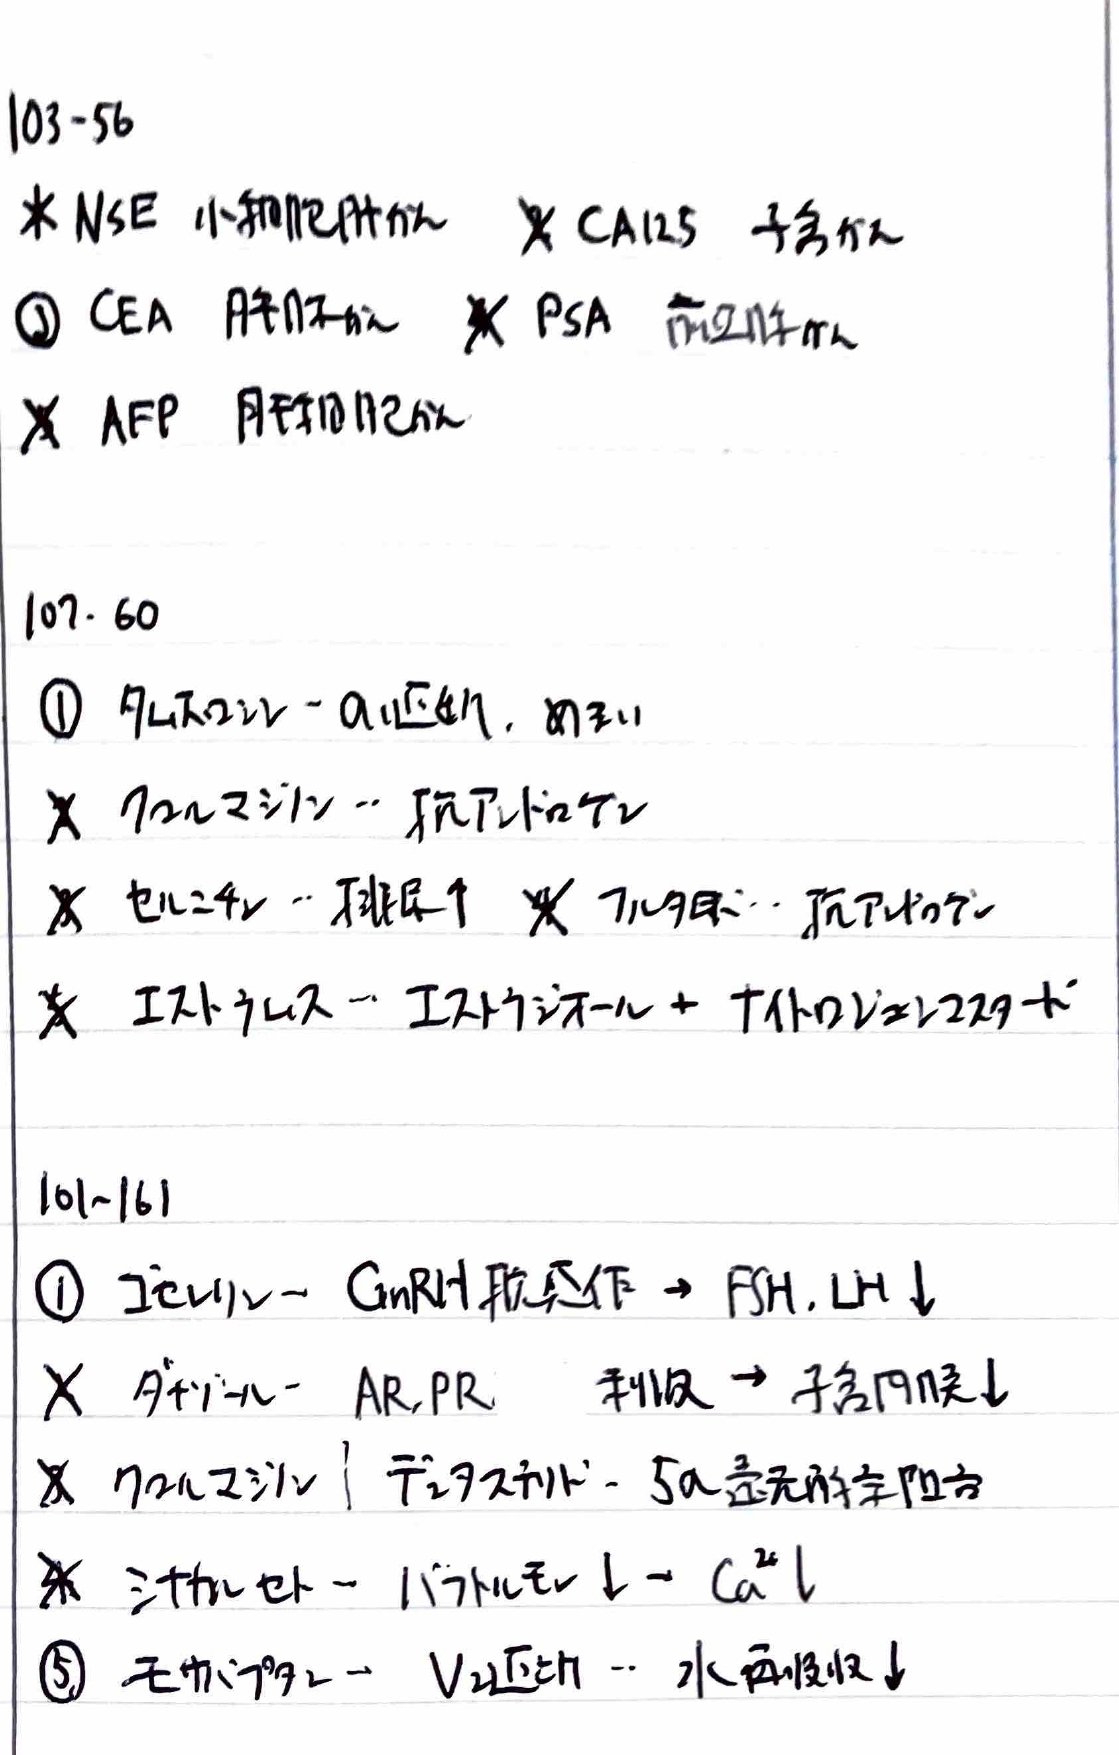 103-56
NSE 小細胞肺がん CA125 子宮がん
② CEA 肝臓がん PSA 前立腺がん
AFP 肝細胞がん
107-60
① タムスロシン - α1遮断, めまい
クロルマジノン ‥ 抗アンドロゲン
セルニチン ‥ 排尿↑ フルタミド‥ 抗アンドロゲン
エストラムス ‥ エストラジオール + ナイトロジェンマスタード
101~161
① ゴセレリン - GnRH 脱感作 → FSH, LH↓
ダナゾール - AR, PR 刺激 → 子宮内膜↓
クロルマジノン | デュタステリド - 5α還元酵素阻害
シナカルセト - パラトルモン↓ - Ca²⁺↓
⑤ モザバプタン - V2遮断 ‥ 水再吸収↓